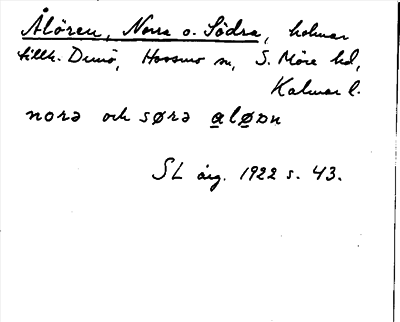 Ålören, Norra o. Södra, holmar
tillh. Dunö, Hossmo sn, S. Möre hd,
Kalmar l.
norə och sørə a̲lø̲ɒn
SL årg. 1922 s. 43.